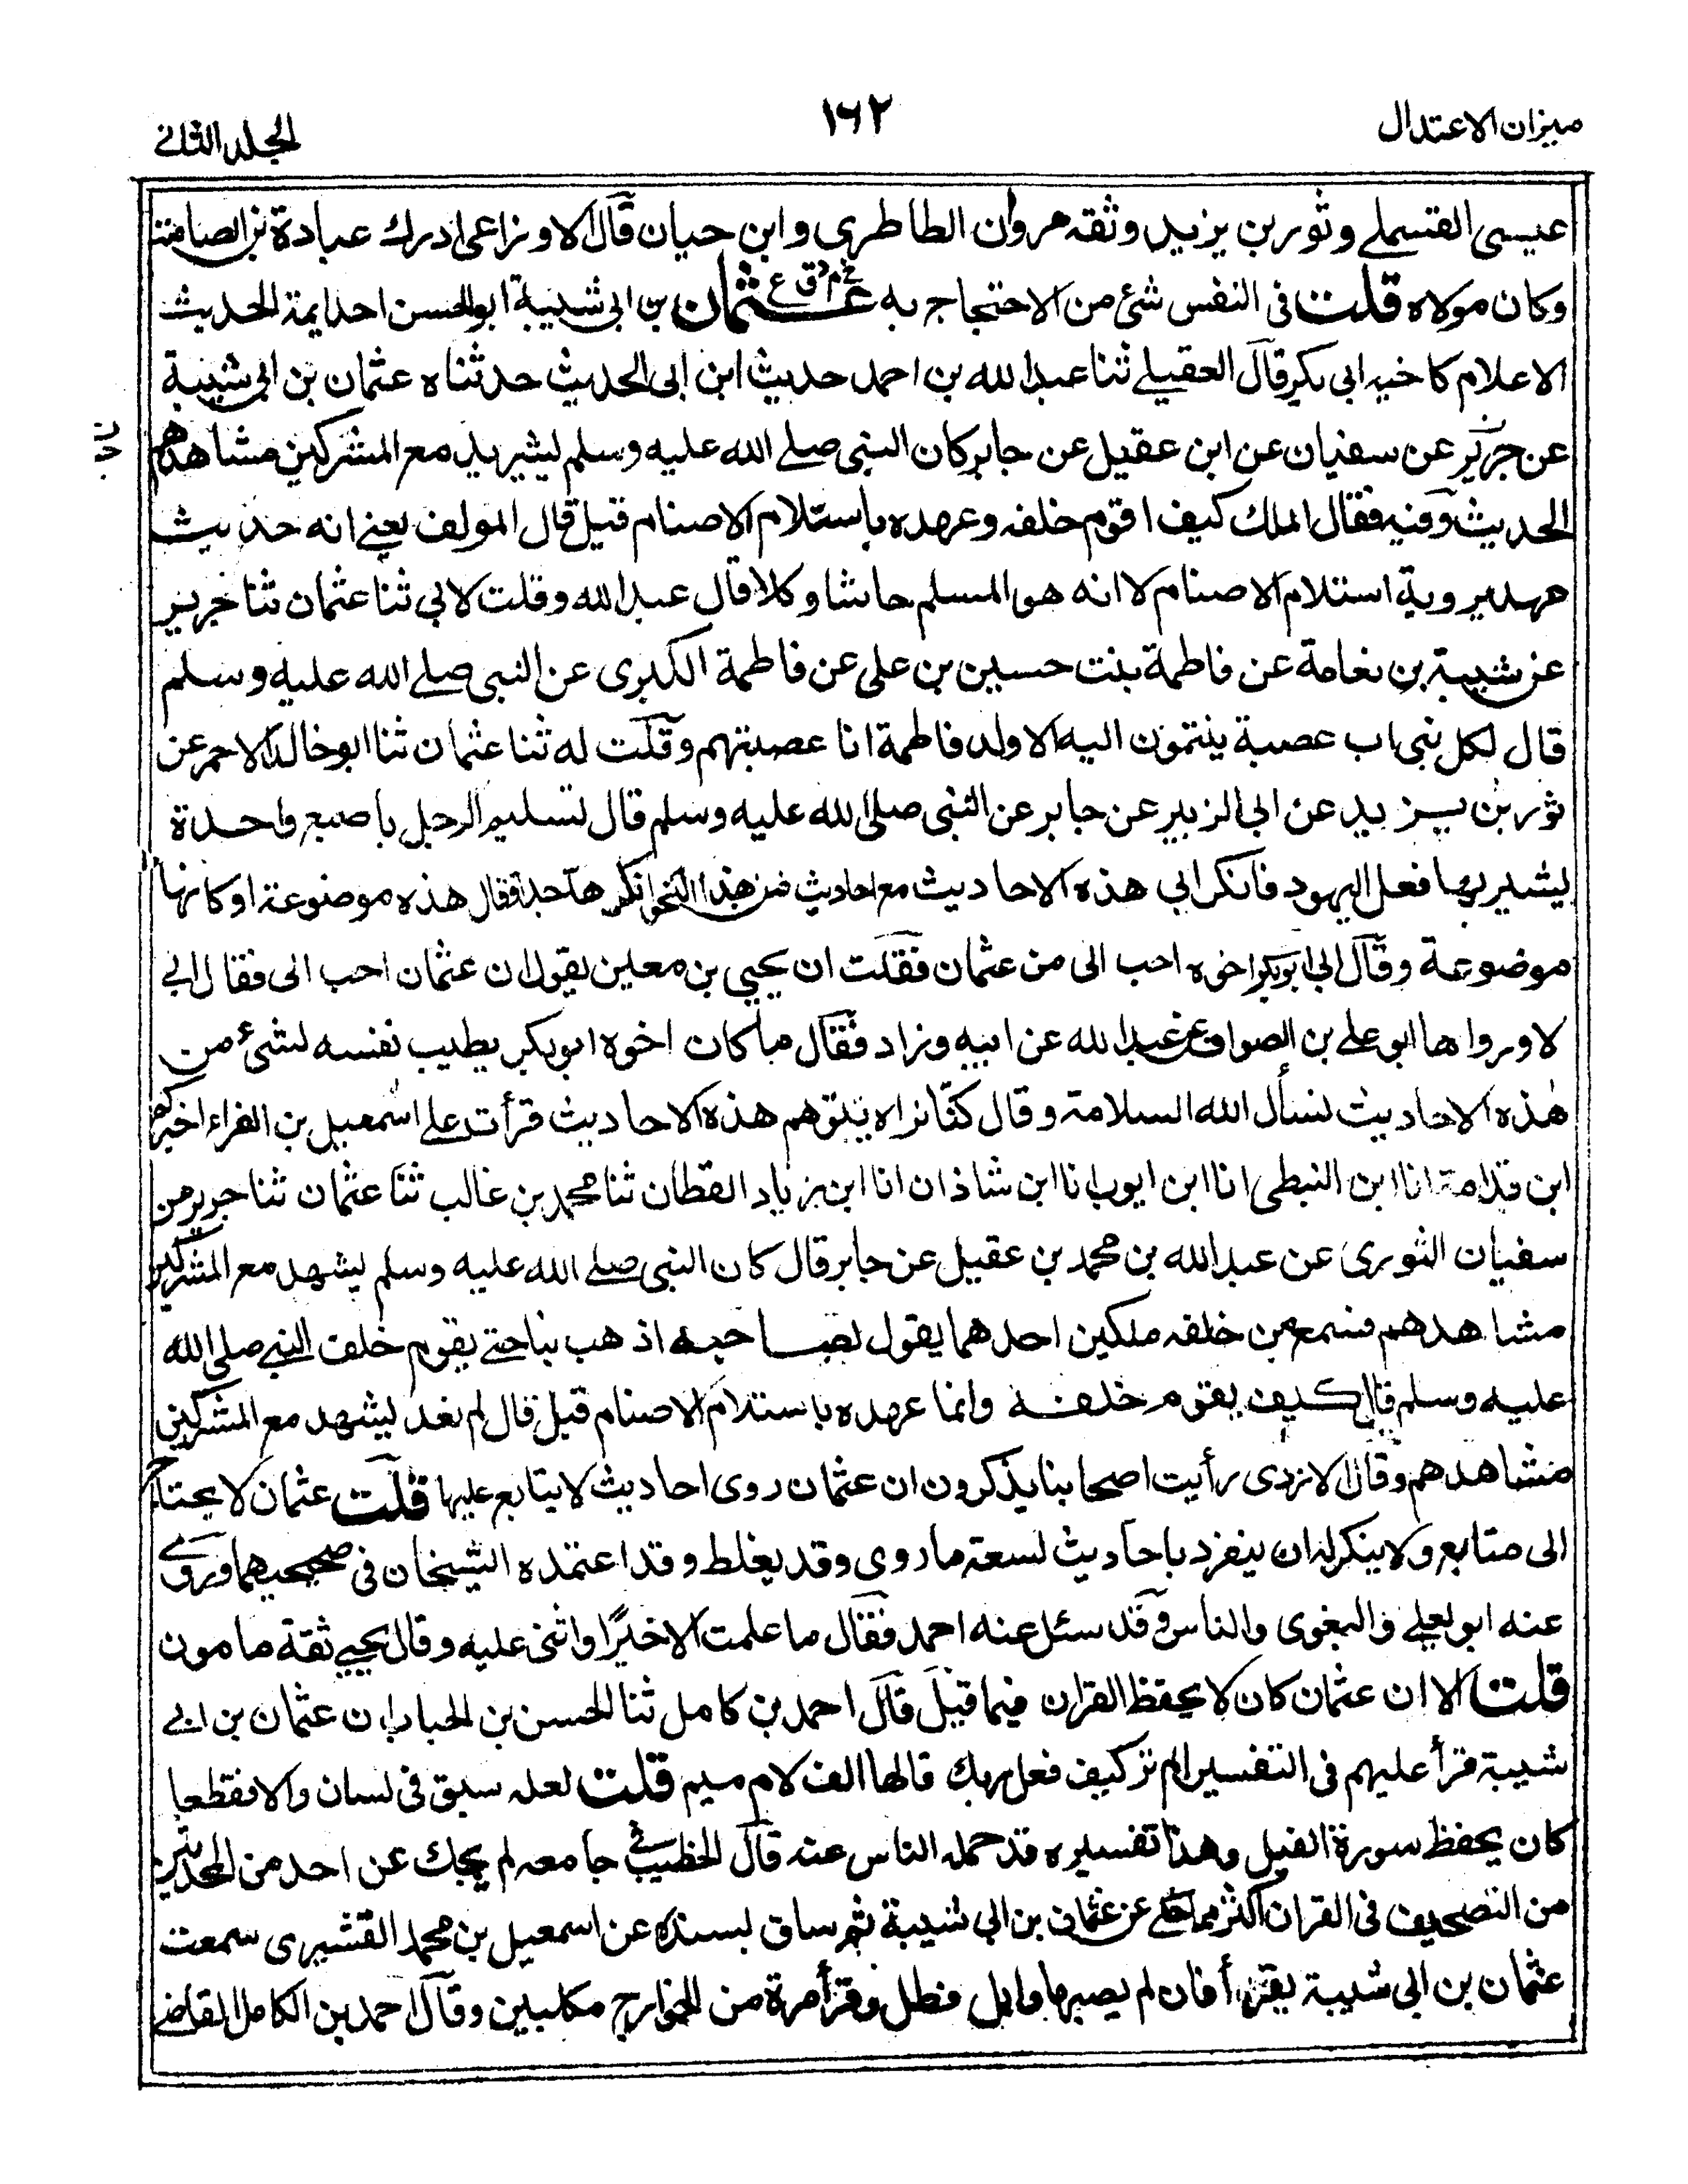 ميزان الاعتدال
١٦٢
المجلد الثانے
عيسى القسملے وثور بن يزيد وثقه مروان الطاطرى وابن حبان قال الاوزاعى ادرك عبادة بن الصامت
وكان مولاه قلت فى النفس شئ من الاحتجاج به عثمان خ م د ق ع بن ابى شيبة ابو الحسن احد ايمة الحديث
الاعلام كاخيه ابى بكر قال العقيلے ثنا عبد الله بن احمد حديث ابن ابى الحديث حدثناه عثمان بن ابى شيبة
عن جرير عن سفيان عن ابن عقيل عن جابر كان النبى صلے الله عليه وسلم ليشهد مع المشركين مشاهدهم
الحديث وفيه فقال الملك كيف اقوم خلفه وعهده باستلام الاصنام قبل قال المولف يعنے انه حديث
عهد برؤية استلام الاصنام لا انه هو المسلم حاشا وكلا قال عبد الله وقلت لابى ثنا عثمان ثنا جرير
عن شيبة بن نعامة عن فاطمة بنت حسين بن على عن فاطمة الكبرى عن النبى صلے الله عليه وسلم
قال لكل بنى اب عصبة ينتمون اليه الا ولد فاطمة انا عصبتهم وقلت له ثنا عثمان ثنا ابو خالد الاحمر عن
ثور بن يزيد عن ابى الزبير عن جابر عن النبى صلى الله عليه وسلم قال تسليم الرجل باصبع واحدة
يشير بها فعل اليهود فانكر ابى هذه الاحاديث مع احاديث من هذا النحو انكرها جدا وقال هذه موضوعة او كانها
موضوعة وقال ابى ابو بكر اخوه احب الى من عثمان فقلت ان يحيى بن معين يقول ان عثمان احب الى فقال ابى
لا ورواها ابو على بن الصواف عن عبد الله عن ابيه وزاد فقال ما كان اخوه ابو بكر يطيب نفسه لشئ من
هذه الاحاديث نسأل الله السلامة وقال كنا نراه يتوهم هذه الاحاديث قرأت على اسمعيل بن الفراء اخبركم
ابن قدامة انا ابن البطى انا ابن ايوب انا ابن شاذان انا ابن زياد القطان ثنا محمد بن غالب ثنا عثمان ثنا جرير من
سفيان الثورى عن عبد الله بن محمد بن عقيل عن جابر قال كان النبى صلے الله عليه وسلم يشهد مع المشركين
مشاهدهم فسمع من خلفه ملكين احدهما يقول لصاحبه اذهب بنا حتے يقوم خلف النبے صلى الله
عليه وسلم قال كيف يقوم خلفه وانما عهده باستلام الاصنام قبل قال لم يعد ليشهد مع المشركين
مشاهدهم وقال الازدى رأيت اصحابنا يذكرون ان عثمان روى احاديث لا يتابع عليها قلت عثمان لا يحتاج
الى متابع ولا ينكر له ان ينفرد باحاديث لسعة ما روى وقد يغلط وقد اعتمده الشيخان فى صحيحيهما وروى
عنه ابو يعلے والبغوى والناس وقد سئل عنه احمد فقال ما علمت الا خيرًا واثنى عليه وقال يحيى ثقة مامون
قلت الا ان عثمان كان لا يحفظ القران فيما قيل قال احمد بن كامل ثنا الحسن بن الحباب ان عثمان بن ابى
شيبة قرأ عليهم فى التفسير الم تر كيف فعل ربك قالها الف لام ميم قلت لعله سبق فى لسان والا فقطعا
كان يحفظ سورة الفيل وهذا تفسيره قد حمله الناس عنه قال الخطيب فى جامعه لم يحك عن احد من المحدثين
من التصحيف فى القران اكثر مما حكى عن عثمان بن ابى شيبة ثم ساق بسنده عن اسمعيل بن محمد القشيرى سمعت
عثمان بن ابى شيبة يقرأ فان لم يصبها وابل فطل وقرأ مرة من الخوارج مكلبين وقال احمد بن الكامل القاضى